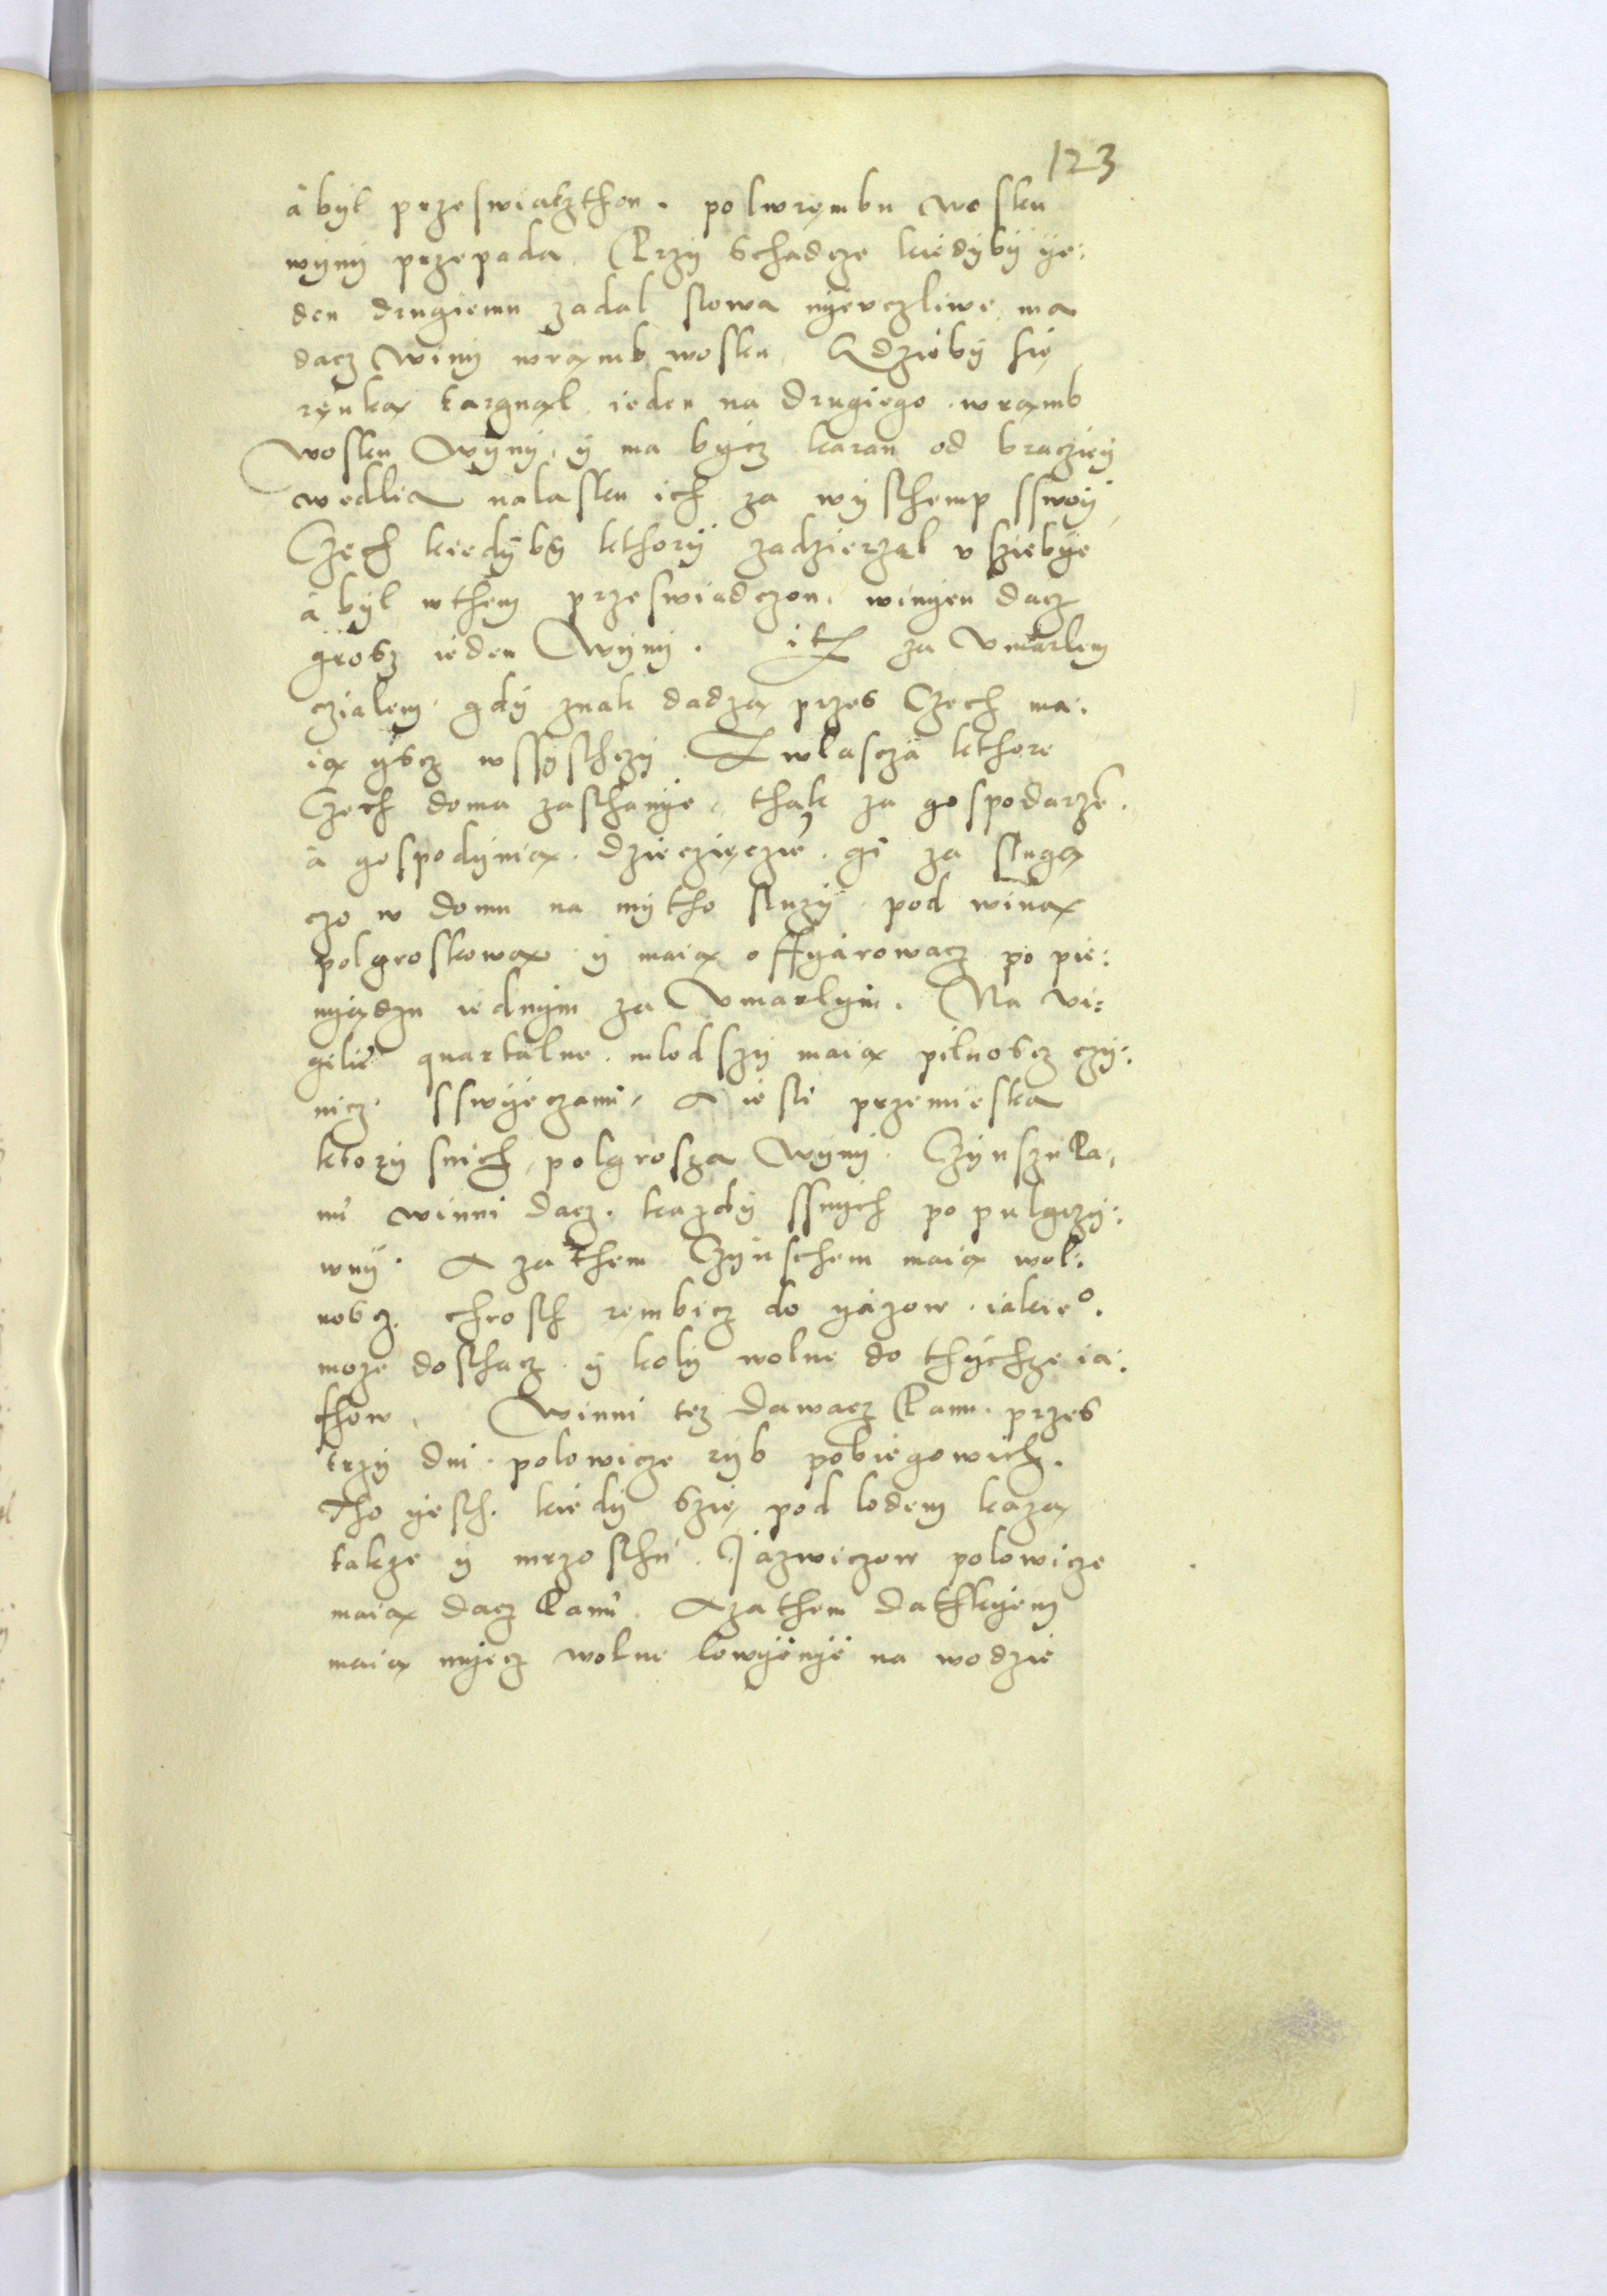 123
a byl przeswiatzthon. polwrembu wosku
wyny przepada. Przy schadcze kiedyby ye:
den drugiemu zadal slowa nyeuczliwe, ma
dacz winy wrąmb wosku Gdzieby sie
ręnką targnąl ieden na drugiego. wrąmb
wosku Wyny, y ma bycz karan od bracziey
wedlia nalasku ich za wysthemp sswoy
Czech kiedyby kthory zadzierząl v sziebye
a byl wthem przeswiadczon. winyen dacz
grosz ieden Wyny. it za Vmarlem
czialem gdy znak dadzą przes Czech ma:
ią yscz wssysthczy A wlascza kthore
Czech doma zasthanye, thak za gospodarze.
a gospodynią. dzieczięczie. gi za slugą
czo w domu na mytho sluzy pod winą
polgroskową y maią offyarowacz po pie:
nyądzu iednym za Vmarlym. Na vi:
gilie quartalne. mlodszy maią pilnoscz czy:
nicz sswyeczami, A iesli przemieska
ktory snich, polgrosza Wyny. Czynszu Pa,
nu winni dacz. kazdy ssnych po pulgrzy:
wny. A zathem Czynschem maią wol:
noscz. chrosth rembicz do yazow. iakie°.
moze dosthacz. y koly wolne do thychze ia:
show, Winni tez dawacz Panu. przes
trzy dni. polowicze ryb pobiegowich.
Tho yesth. kiedy szie pod lodem każą
takze y mrzosthu. Jazwiczow polowicze
maią dacz Panu. A zathem dathkyem
maią myecz wolne lowyenye na wodzie